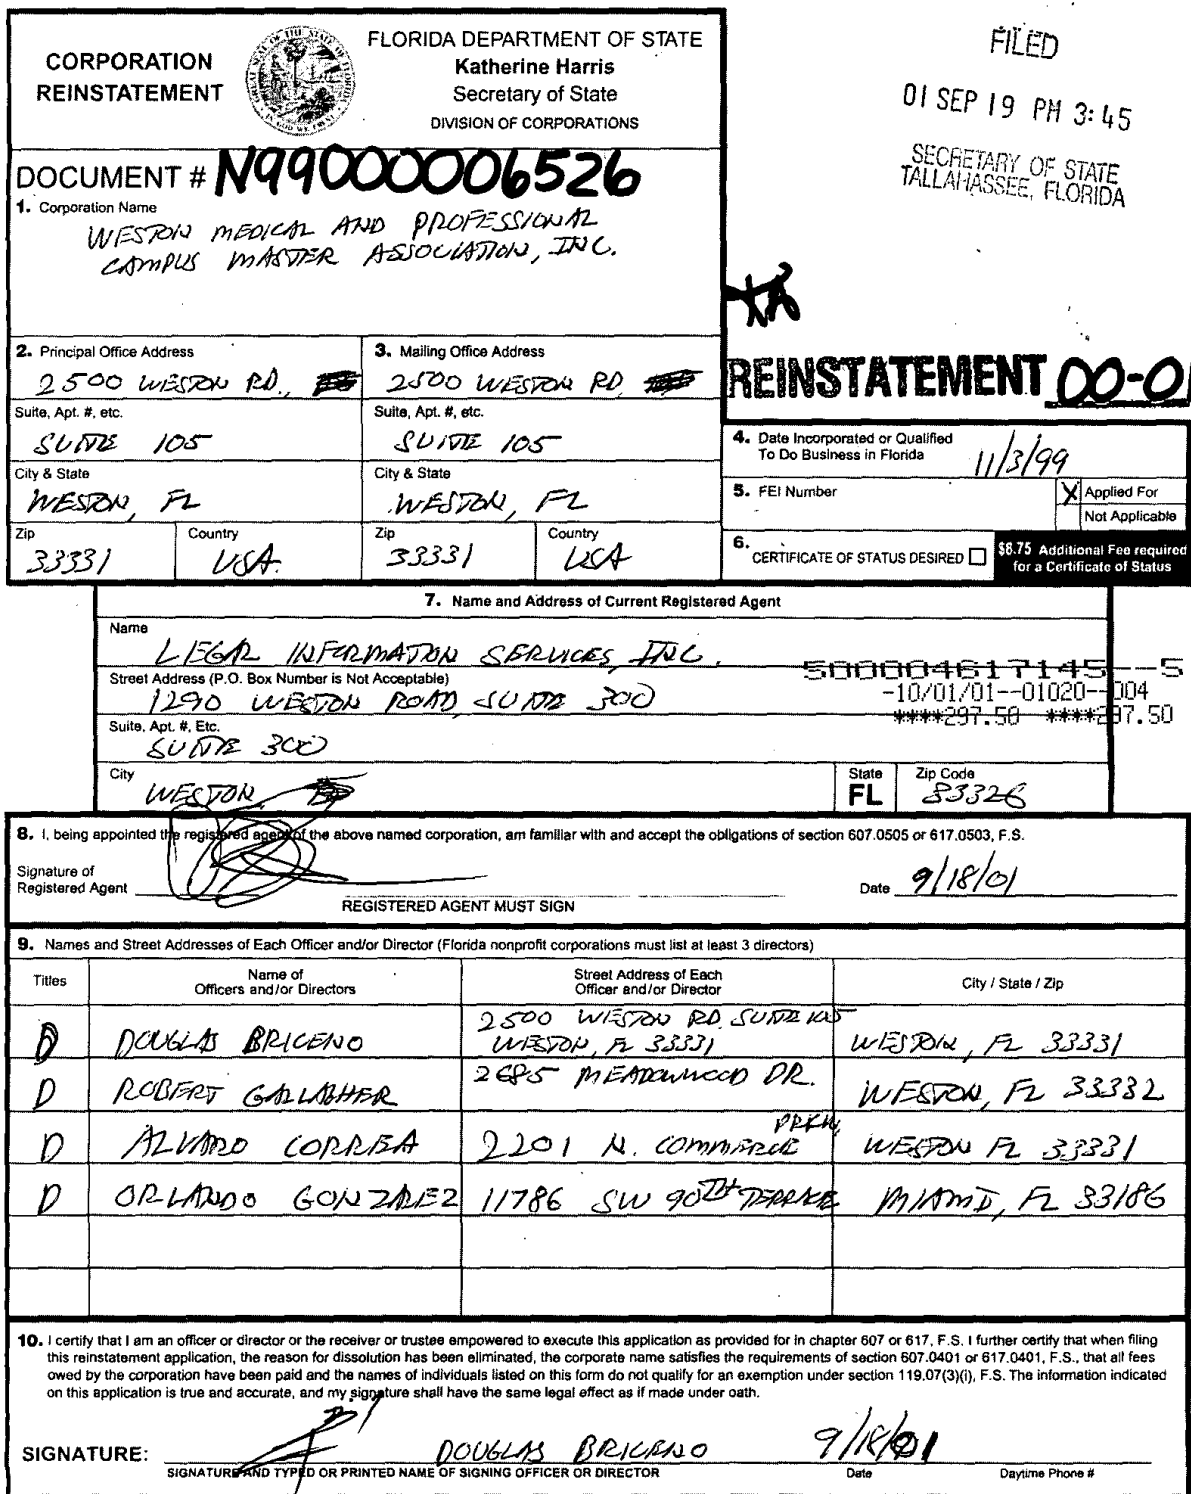 CORPORATION
REINSTATEMENT
FLORIDA DEPARTMENT OF STATE
Katherine Harris
Secretary of State
DIVISION OF CORPORATIONS
FILED
01 SEP 19 PM 3:45
SECRETARY OF STATE
TALLAHASSEE, FLORIDA
DOCUMENT # N99000006526
1. Corporation Name
WESTON MEDICAL AND PROFESSIONAL
CAMPUS MASTER ASSOCIATION, INC.
REINSTATEMENT 00-0
2. Principal Office Address
2500 WESTON RD.,
Suite, Apt. #, etc.
SUITE 105
City & State
WESTON, FL
Zip
33331
Country
USA
3. Mailing Office Address
2500 WESTON RD
Suite, Apt. #, etc.
SUITE 105
City & State
WESTON, FL
Zip
33331
Country
USA
4. Date Incorporated or Qualified
To Do Business in Florida
11/3/99
5. FEI Number
X Applied For
Not Applicable
6. CERTIFICATE OF STATUS DESIRED
$8.75 Additional Fee required
for a Certificate of Status
7. Name and Address of Current Registered Agent
Name
LEGAL INFORMATION SERVICES, INC.
Street Address (P.O. Box Number is Not Acceptable)
1290 WESTON ROAD, SUITE 300
Suite, Apt. #, Etc.
SUITE 300
City
WESTON,
State
FL
Zip Code
33326
500004617145--5
-10/01/01--01020--004
****297.50 ****297.50
8. I, being appointed the registered agent of the above named corporation, am familiar with and accept the obligations of section 607.0505 or 617.0503, F.S.
Signature of
Registered Agent
REGISTERED AGENT MUST SIGN
Date 9/18/01
9. Names and Street Addresses of Each Officer and/or Director (Florida nonprofit corporations must list at least 3 directors)
Titles
Name of
Officers and/or Directors
Street Address of Each
Officer and/or Director
City / State / Zip
D DOUGLAS BRICENO 2500 WESTON RD. SUITE 105
WESTON, FL 33331 WESTON, FL 33331
D ROBERT GALLAGHER 2685 MEADOWWOOD DR. WESTON, FL 33332
D ALVARO CORREA 2201 N. COMMERCE PRKW, WESTON FL 33331
D ORLANDO GONZALEZ 11786 SW 90TH TERRACE MIAMI, FL 33186
10. I certify that I am an officer or director or the receiver or trustee empowered to execute this application as provided for in chapter 607 or 617, F.S. I further certify that when filing
this reinstatement application, the reason for dissolution has been eliminated, the corporate name satisfies the requirements of section 607.0401 or 617.0401, F.S., that all fees
owed by the corporation have been paid and the names of individuals listed on this form do not qualify for an exemption under section 119.07(3)(i), F.S. The information indicated
on this application is true and accurate, and my signature shall have the same legal effect as if made under oath.
SIGNATURE: DOUGLAS BRICENO 9/18/01
SIGNATURE AND TYPED OR PRINTED NAME OF SIGNING OFFICER OR DIRECTOR
Date
Daytime Phone #